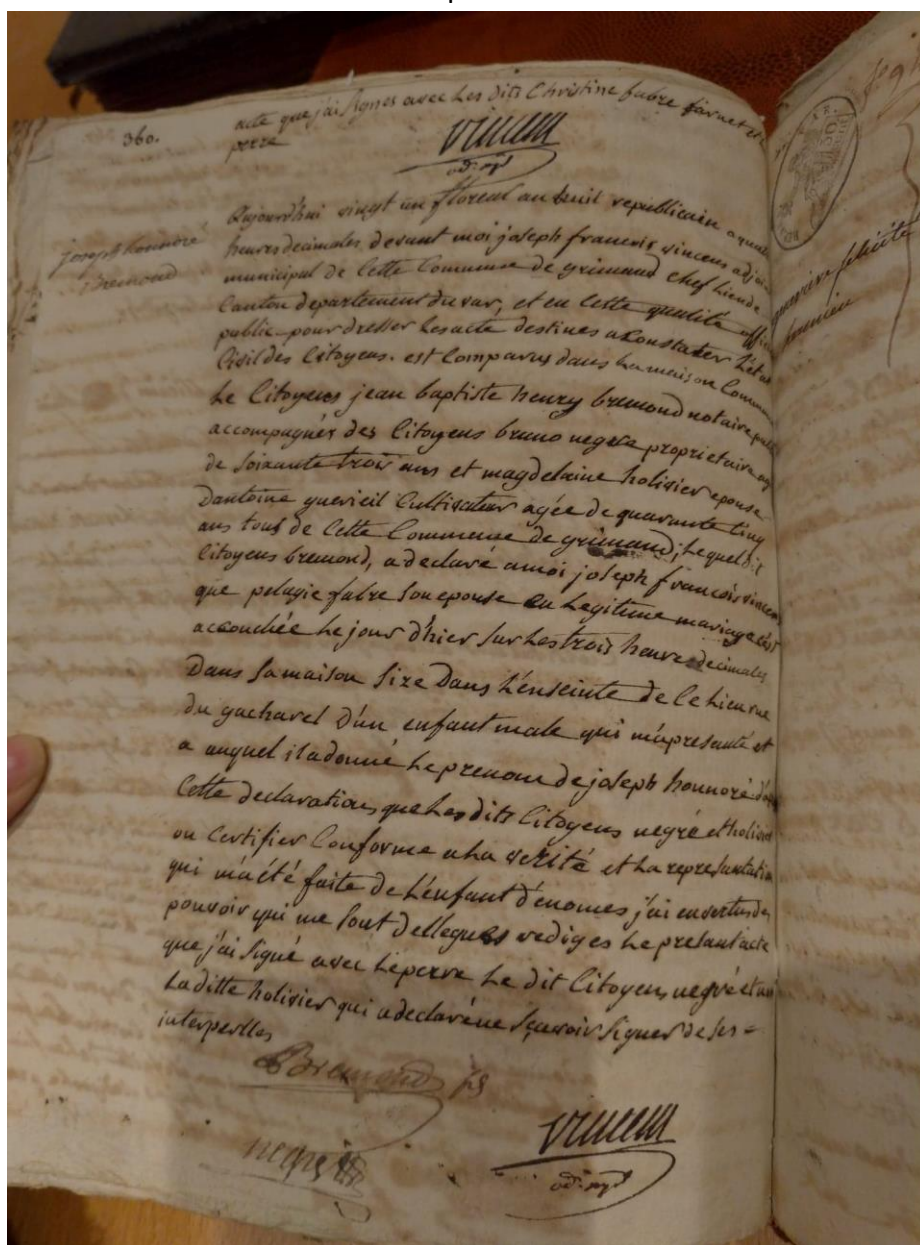 360.
acte que j'ai signes avec les dits Christine fabre farnet et le
perre
Vincens
ad: mpl
joseph honnoré
Bremond
aujourd'hui vingt un floreal an huit republicain a quatre
heures decimales devant moi joseph francois vincens adjoin
municipal de cette Commune de grimaud chef lieu de
Canton departement du var, et en cette qualité offi
public pour dresser les acte destines a constater l'etat
Civil des Citoyens. est Comparus dans la maison Commu
le Citoyens jean baptiste henry bremond notaire publ
accompagnér des Citoyens bruno negre proprietaire ag
de soixante trois ans et magdelaine holivier epouse
dantoine guerieil Cultivateur agée de quarante cinq
ans tous de cette Commune de grimaud; lequel dit
Citoyens bremond, a declaré a moi joseph francois vincens
que pelagie fabre son epouse en legitime mariage c'est
accouchée le jour d'hier sur les trois heures decimales
dans sa maison size dans l'enseinte de ce lieu rue
du gacharel d'un enfant male qui m'a presanté et
a auquel il a donné le prenom de joseph honnoré d'a
Cette declaration, que les dits Citoyens negre et holivier
on Certifier Conforme a la verité et la representation
qui m'a été faite de l'enfant d'enomes j'ai en vertus des
pouvoir qui me sont dellegues rediges le presant acte
que j'ai signé avec le perre le dit Citoyens negré et non
la ditte holivier qui a declaré ne sçavoir signer de ses =
interpelles
Bremond
negre
Vincens
ad: mpl
felicité